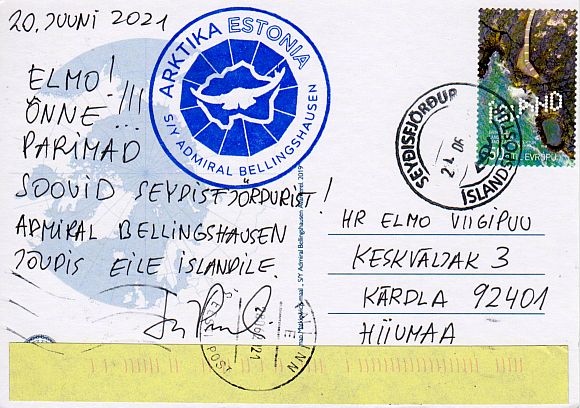 20. JUUNI 2021
ELMO!
ÕNNE!!!
PARIMAD
SOOVID SEYDISFJÖRDURIST!
ADMIRAL BELLINGSHAUSEN
JÕUDIS EILE ISLANDILE.
ARKTIKA ESTONIA
S/Y ADMIRAL BELLINGSHAUSEN
SEYÐISFJÖRÐUR
ÍSLANDSPÓSTUR
EVRÓPU
HR ELMO VIIGIPUU
KESKVÄLJAK 3
KÄRDLA 92401
HIIUMAA
S/Y Admiral Bellingshausen